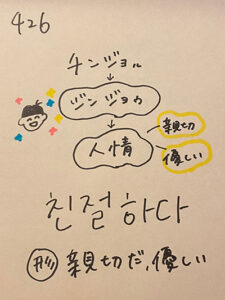 426
チンジョル
ジンジョウ
人情
親切
優しい
친절하다
形 親切だ、優しい